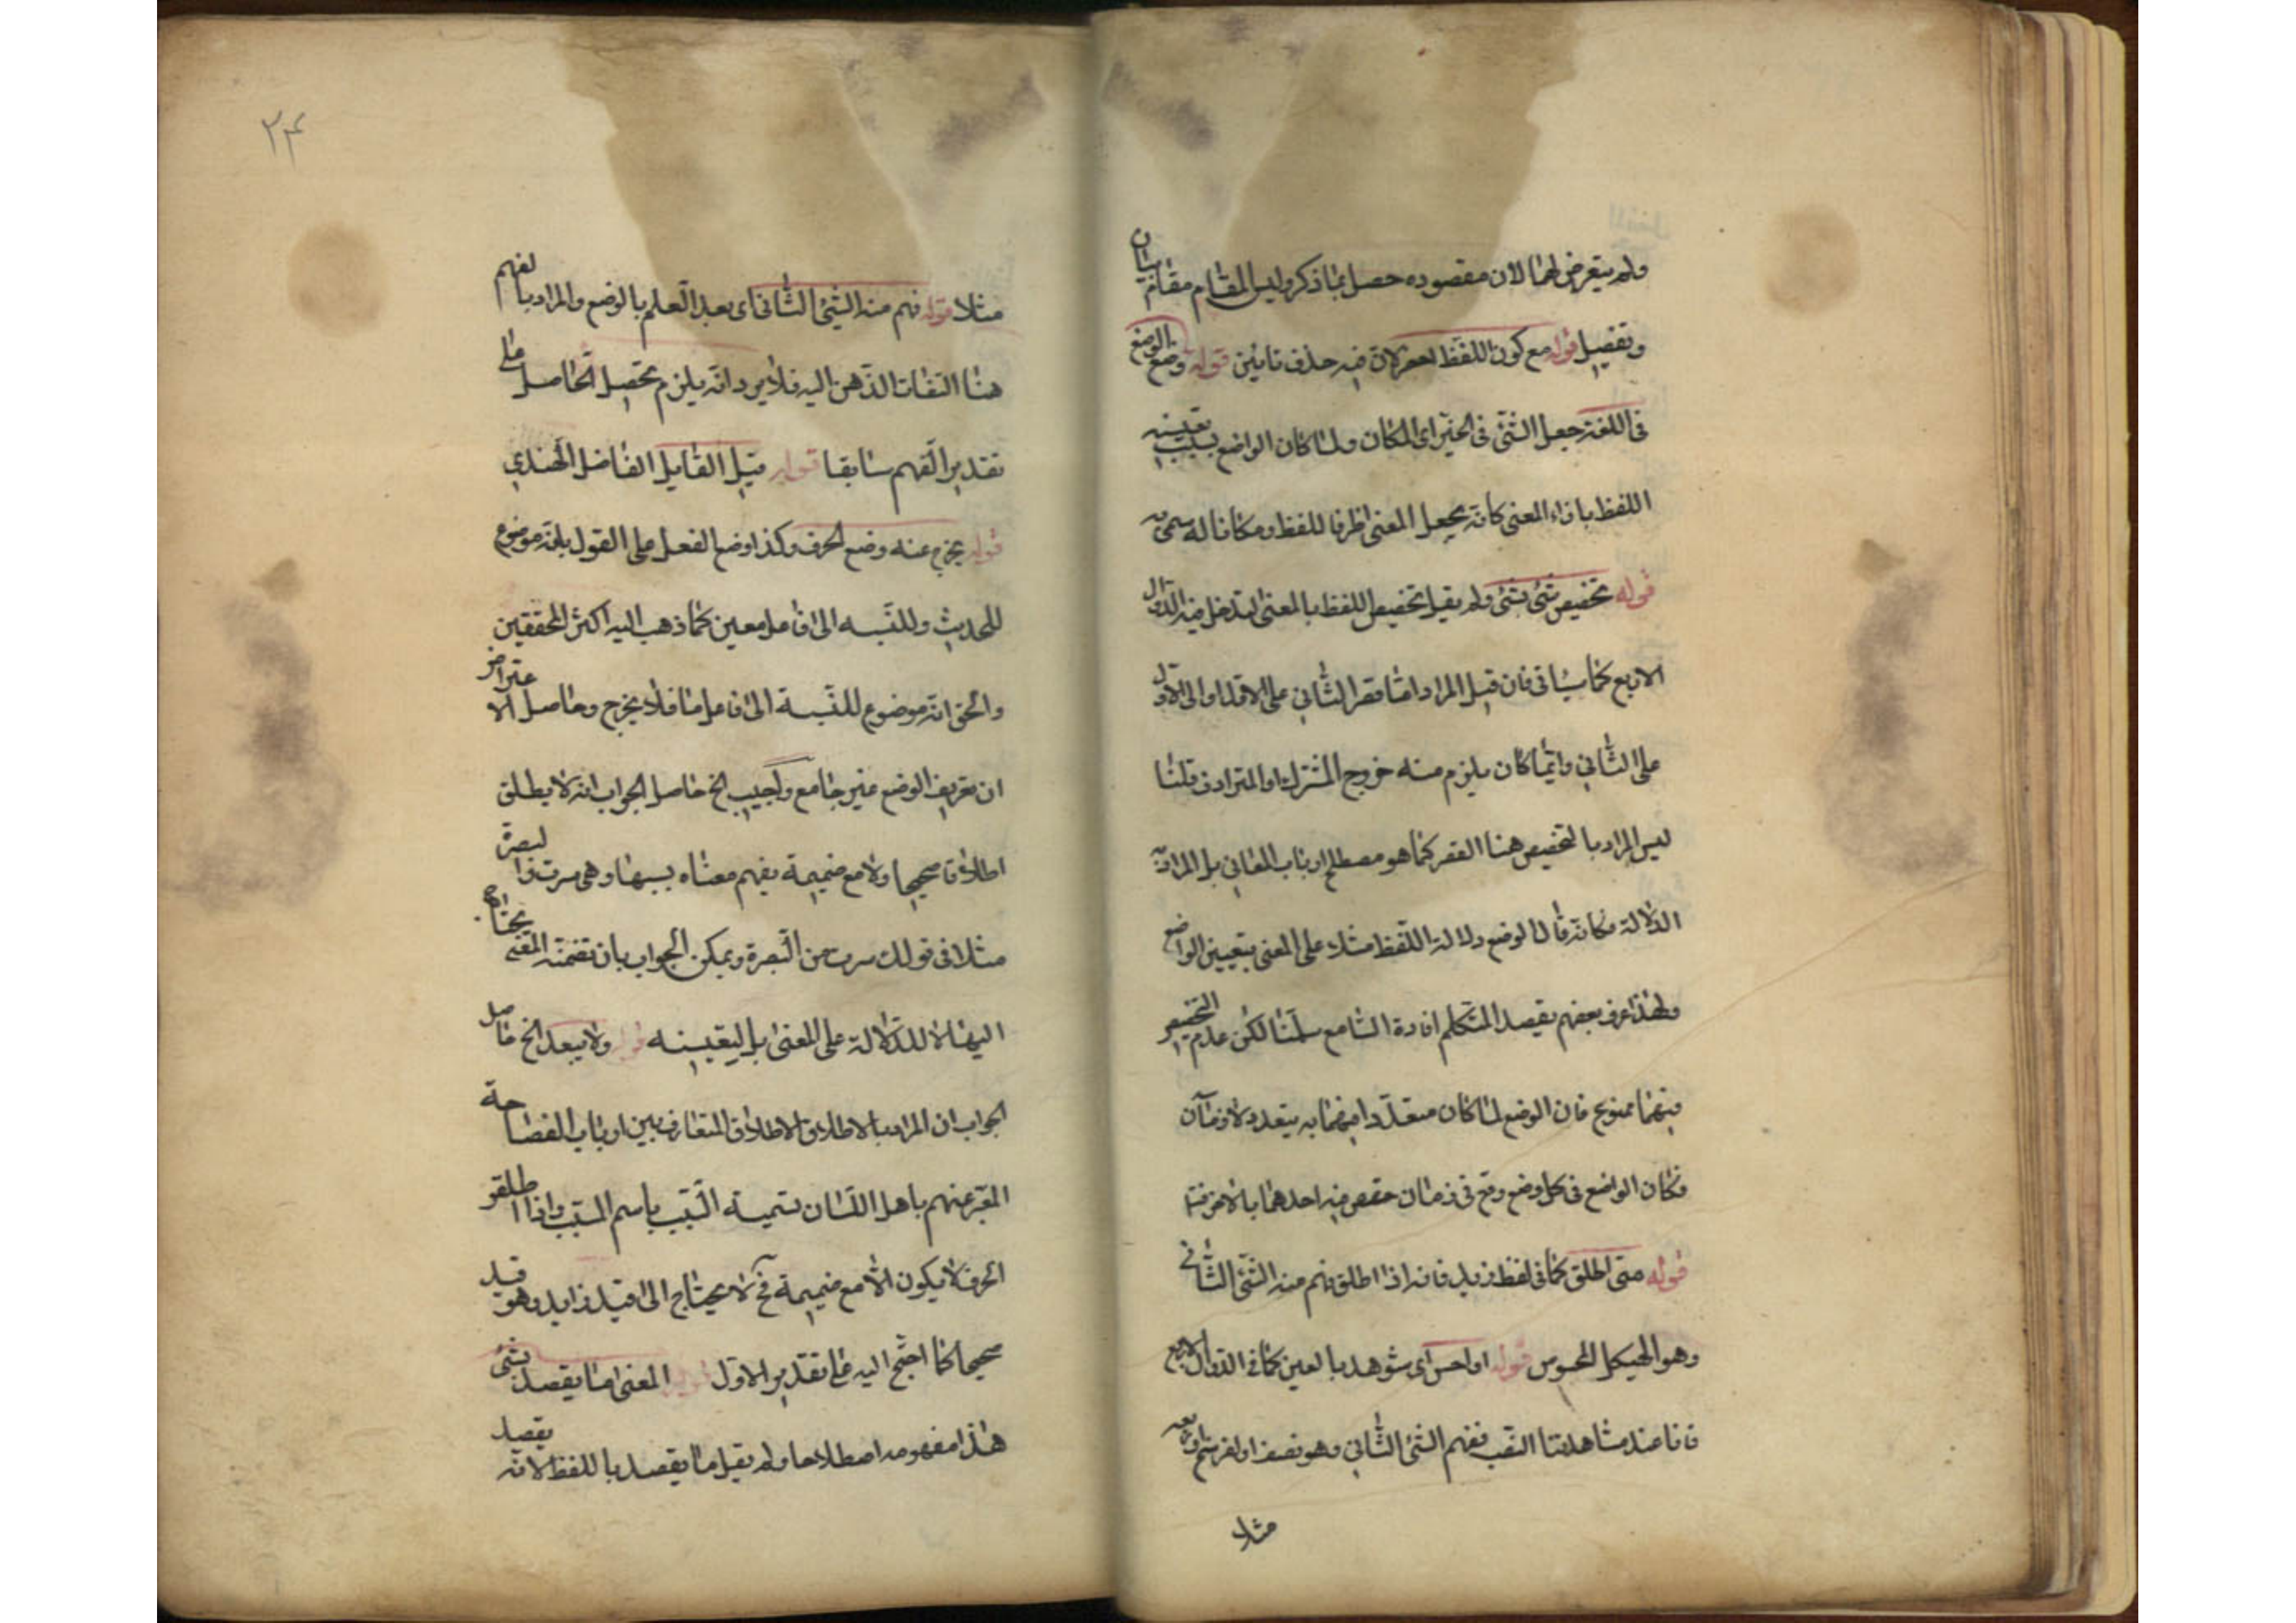 ولم يتعرض لهما لان مقصوده حصل بما ذكر وليس المقام مقام بيان
وتفصيل قوله مع كون اللفظ فيه حذف قوله وضع الوضع
فى اللغة جعل الشئ فى الحيز اى المكان ولما كان الواضع بسبب تعيينه
اللفظ بازاء المعنى كانه يجعل المعنى ظرفا للفظ ومكانا له سمى به
قوله تخصيص شئ بشئ ولم يقل تخصيص اللفظ بالمعنى ليدخل فيه الدوال
الاربع كما سياتى فان قيل المراد اما قصر الثانى على الاول او الاول
على الثانى وايما كان يلزم منه خروج المشترك او المترادف قلنا
ليس المراد بالتخصيص هنا القصر كما هو مصطلح ارباب المعانى بل المراد به
الدلالة فكانه قال الوضع دلالة اللفظ مثلا على المعنى بتعيين الواضع
ولهذا عرف بعضهم بقصد المتكلم افادة السامع سلمنا لكن عدم التخصيص
فيهما ممنوع فان الوضع لما كان متعددا فيهما به يتعدد لا
فكان الواضع فى كل وضع وقع فى زمان خصص فيه احدهما بالاخر
قوله متى اطلق كما فى لفظ زيد فانه اذا اطلق فهم منه الشئ الثانى
وهو الهيكل المحسوس قوله او احس اى شوهد بالعين كما فى الدوال الاربع
فانا عند مشاهدتنا النصب نفهم الشئ الثانى وهو نصف او فرسخ
مثلا
٢٤
مثلا قوله فهم منه الشئ الثانى اى بعد العلم بالوضع والمراد بالفهم
هنا التفات الذهن اليه فلا يرد انه يلزم تحصيل الحاصل على
تقدير الفهم سابقا قوله قيل القايل الفاضل الهندي
قوله يخرج عنه وضع الحرف وكذا وضع الفعل على القول بانه موضوع
للحدث وللنسبه الى فاعل معين كما ذهب اليه اكثر المحققين
والحق انه موضوع للنسبة الى فاعل ما فلا يخرج وحاصل الاعتراض
ان تعريف الوضع غير جامع واجيب الخ حاصل الجواب انه لا يطلق
اطلاقا صحيحا ولا مع ضميمة يفهم معناه بسببها وهى سرت والبصرة
مثلا فى قولك سرت من البصرة ويمكن الجواب بان تضمنه المعنى يحتاج
اليها لا للدلالة على المعنى بل لتعيينه قوله ولا يبعد الخ حاصل
الجواب ان المراد بالاطلاق الاطلاق المتعارف بين ارباب الفصاحة
المعبر عنهم باهل اللسان تسمية السبب باسم المسبب واذا اطلقو
الحرف لا يكون الا مع ضميمة فح لا يحتاج الى قيد زايد وهو قيد
صحيحا كما احتج اليه على تقدير الاول قوله المعنى اما يقصد بشئ
هذا مفهومه اصطلاحا ولم يقل ما يقصد باللفظ لانه يقصد